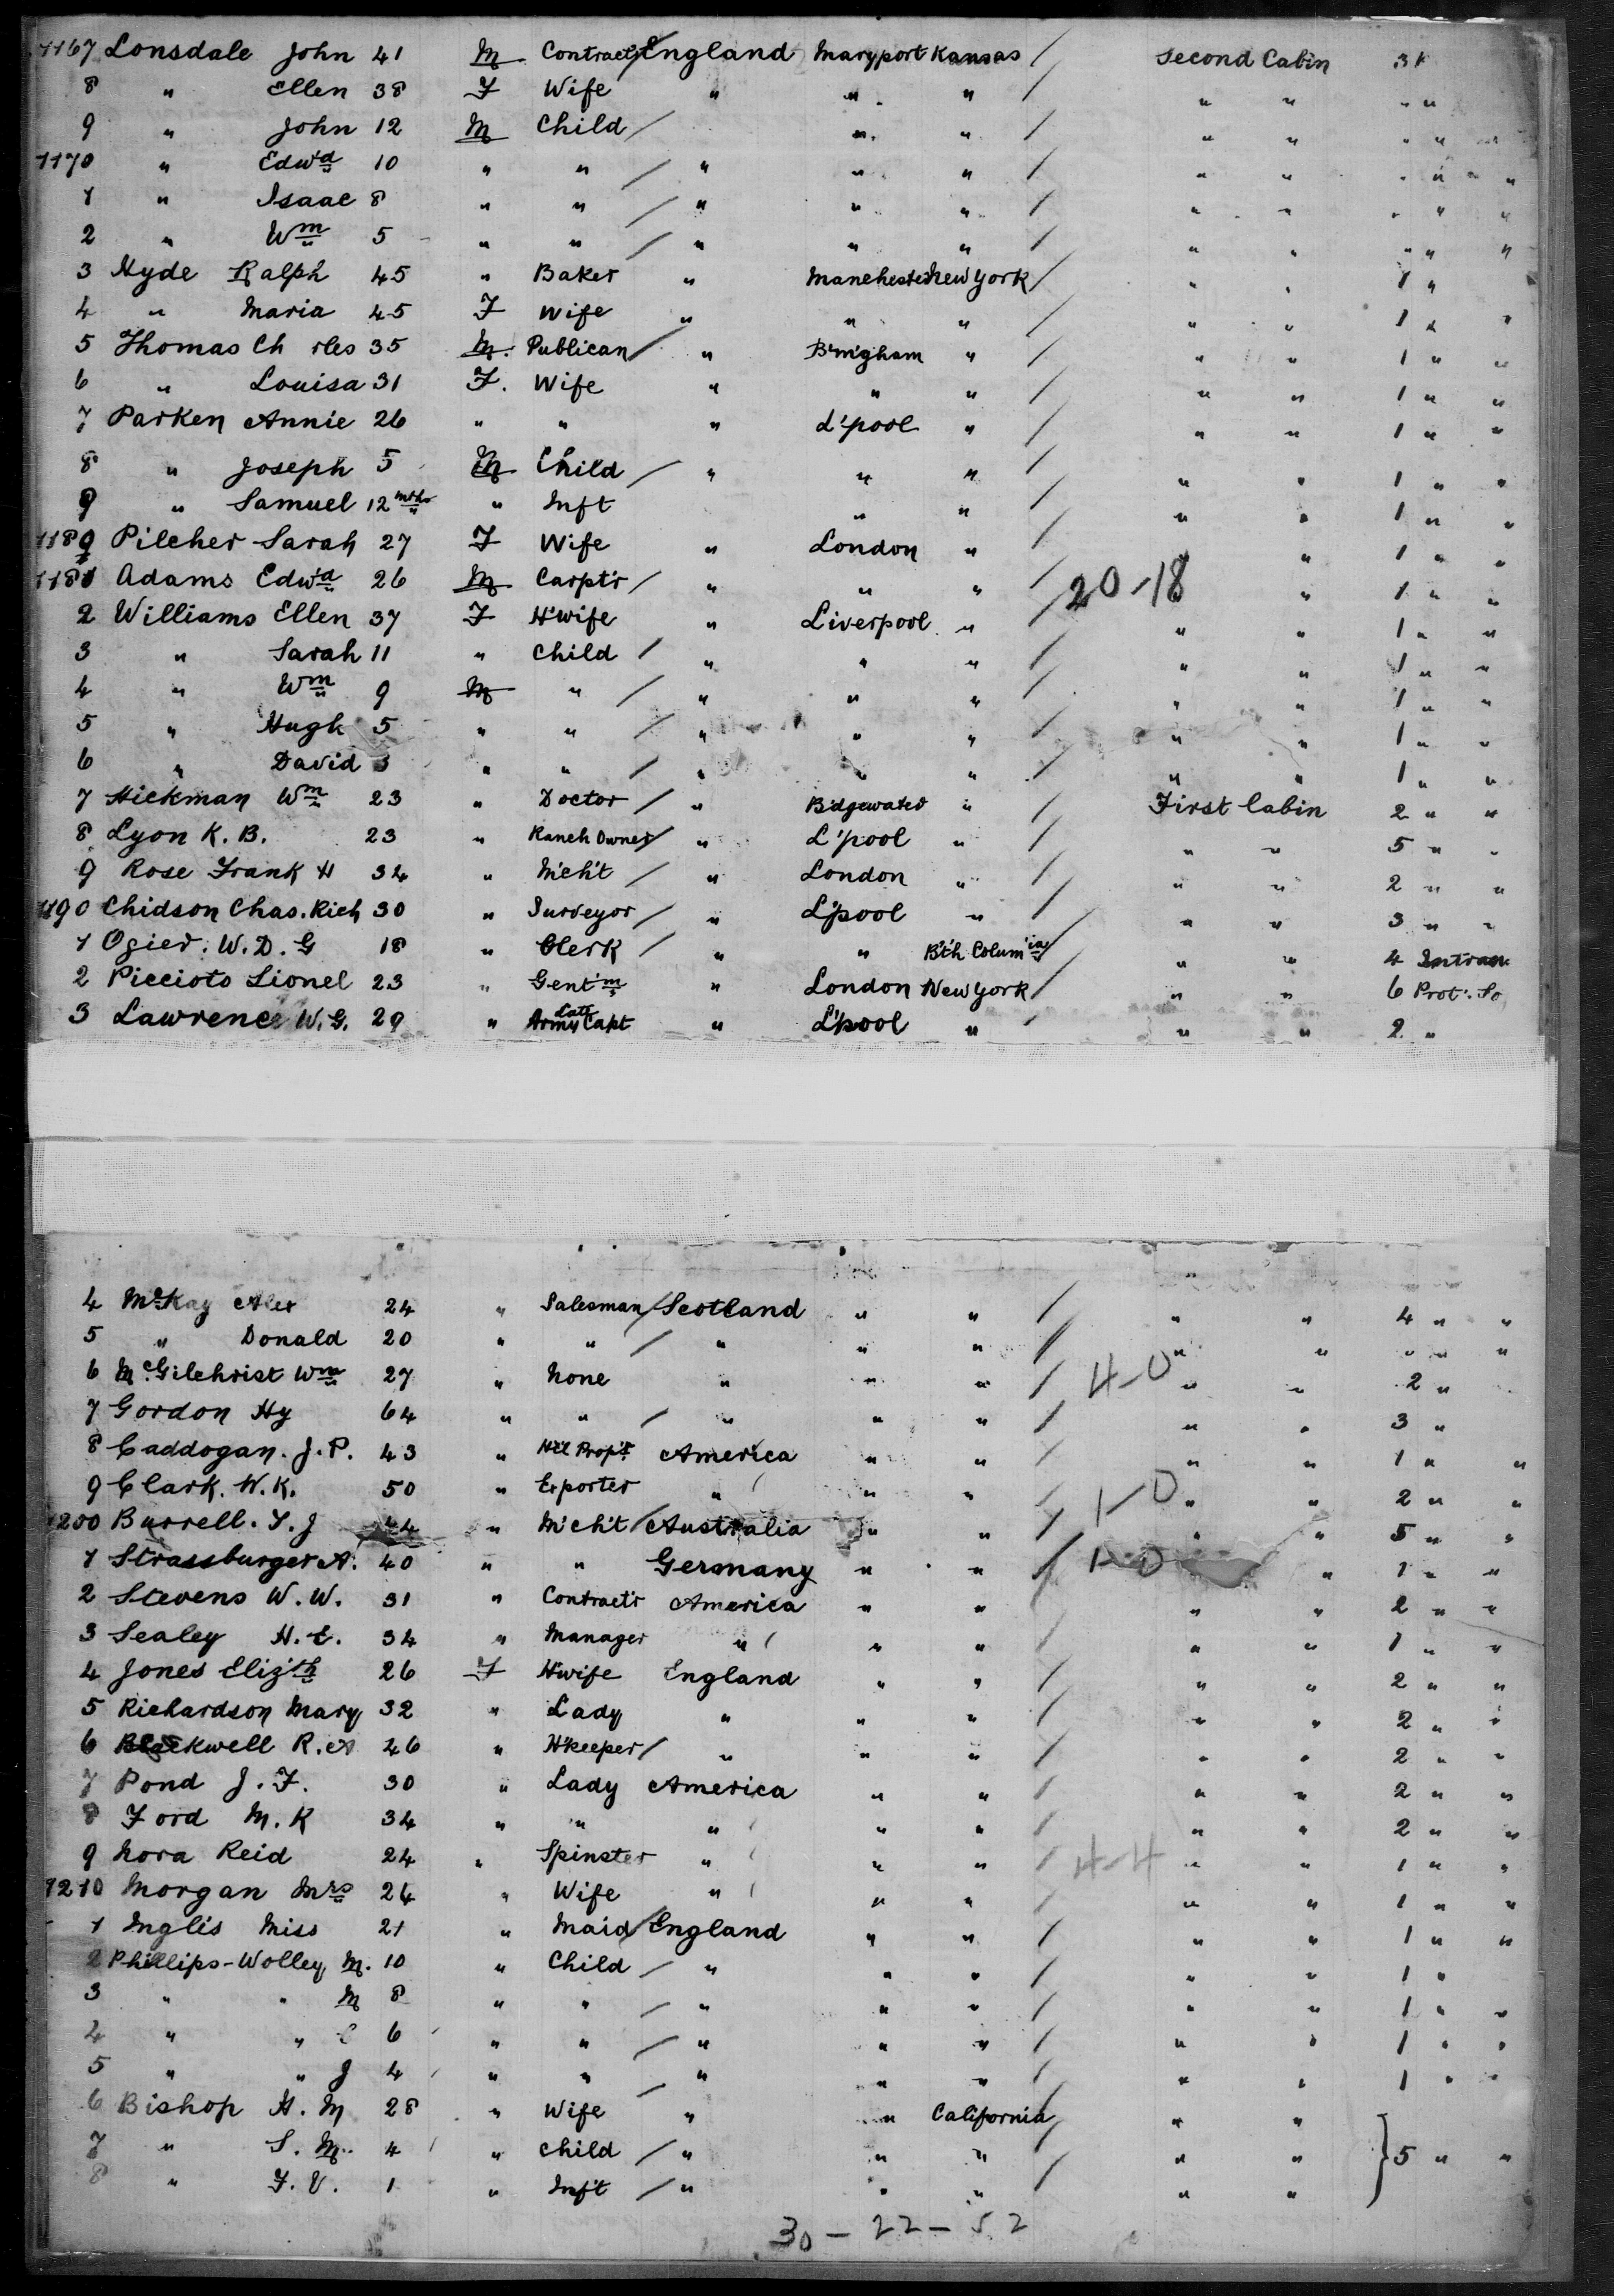 1167 Lonsdale John 41 M Contract'r England Maryport Kansas / Second Cabin 31
8 " Ellen 38 F Wife " " " / " " " "
9 " John 12 M Child / " " / " " " "
1170 " Edwd 10 " " / " " " / " " " " "
1 " Isaac 8 " " / " " " / " " " " "
2 " Wm 5 " " / " " " / " " " " "
3 Hyde Ralph 45 " Baker " Manchester New York / " " 1 "
4 " Maria 45 F Wife " " " / " " 1 " "
5 Thomas Ch rles 35 M. Publican / " B'm'gham " / " " 1 " "
6 " Louisa 31 F. Wife " " " / " " 1 " "
7 Parken Annie 26 " " " L'pool " / " " 1 " "
8 " Joseph 5 M Child / " " " / " " 1 " "
9 " Samuel 12 mths " Inft " " / " " 1 " "
1180 Pilcher Sarah 27 F Wife " London " / " 1 " "
1181 Adams Edw'd 26 M Carpt'r / " " " / 20-18 " 1 " "
2 Williams Ellen 37 F H'wife " Liverpool " / " " 1 " "
3 " Sarah 11 " Child / " " " / " " 1 " "
4 " Wm 9 M " / " " " / " " 1 " "
5 " Hugh 5 " " / " " " / " " 1 " "
6 " David 3 " " / " " " / " " 1 " "
7 Hickman Wm 23 " Doctor / " B'dgewater " / First Cabin 2 " "
8 Lyon K. B. 23 " Ranch Owner / " L'pool " / " " 5 " "
9 Rose Frank H 34 " M'ch't / " London " / " " 2 " "
1190 Chidson Chas. Rich 30 " Surveyor / " L'pool " / " " 3 " "
1 Ogier. W. D. G 18 " Clerk / " " B'th Colum'ia / " " 4 Intran
2 Piccioto Lionel 23 " Gent'm " London New York / " " 6 Prot. So
3 Lawrence W. G. 29 " Late Army Capt " L'pool " / " " 2 "
4 McKay Alex 24 " Salesman / Scotland " " / " " 4 " "
5 " Donald 20 " " / " " " / " " " " "
6 Mc.Gilchrist Wm 27 " None " " " / 4-0 " " 2 "
7 Gordon Hy 64 " " / " " " / " " 3 "
8 Caddogan. J. P. 43 " H'l Prop'r America " " / " " 1 " "
9 Clark. W. K. 50 " Exporter " " " / 1-0 " " 2 " "
1200 Burrell. T. J 44 " M'ch't / Australia " " / " " 5 " "
1 Strassburger A. 40 " " Germany " " / 1-0 " 1 " "
2 Stevens W. W. 31 " Contract'r America " " / " " 2 " "
3 Sealey H. E. 34 " Manager " " " / " " 1 " "
4 Jones Eliz'th 26 F H'wife England " " / " " 2 " "
5 Richardson Mary 32 " Lady " " " / " " 2 " "
6 Blackwell R. A 46 " H'keeper / " " " / " " 2 " "
7 Pond J. F. 30 " Lady America " " / " " 2 " "
8 Ford M. K 34 " " " " " / " " 2 " "
9 Nora Reid 24 " Spinster " " " / 4-4 " " 1 " "
1210 Morgan Mrs 24 " Wife " " " / " " 1 " "
1 Inglis Miss 21 " Maid / England " " / " " 1 " "
2 Phillips-Wolley M. 10 " Child / " " " / " " 1 "
3 " " M 8 " " / " " " / " " 1 " "
4 " " C 6 " " / " " " / " " 1 " "
5 " " J 4 " " / " " " / " " 1 " "
6 Bishop H. M 28 " Wife " " California / " "
7 " S. M. 4 " Child / " " " / " " } 5 " "
8 " F. V. 1 " Inf't / " " " / " "
30 - 22 - 52